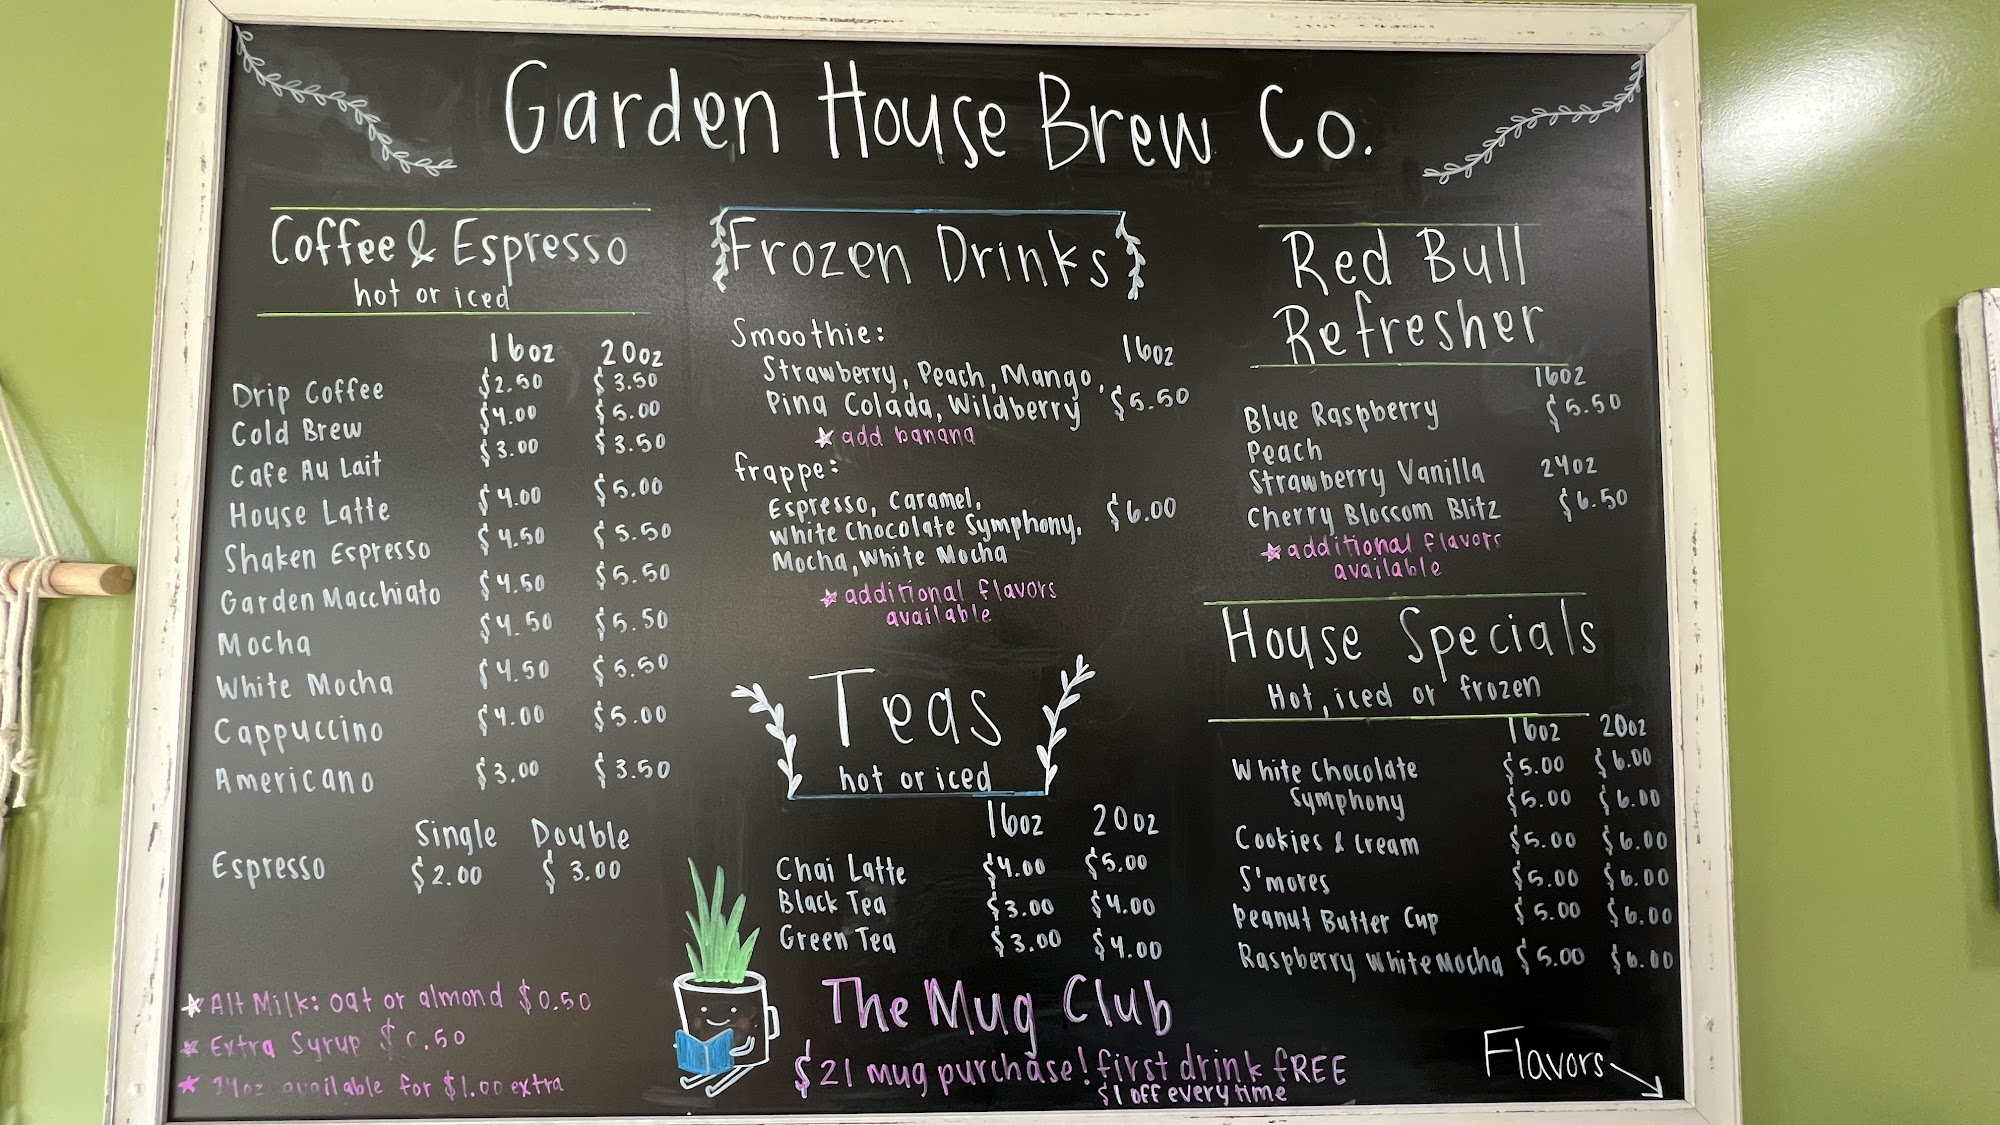 Garden House Brew Co.
Coffee & Espresso
hot or iced
16oz 20oz
Drip Coffee $2.50 $3.50
Cold Brew $4.00 $5.00
Cafe Au Lait $3.00 $3.50
House Latte $4.00 $5.00
Shaken Espresso $4.50 $5.50
Garden Macchiato $4.50 $5.50
Mocha $4.50 $5.50
White Mocha $4.50 $5.50
Cappuccino $4.00 $5.00
Americano $3.00 $3.50
Single Double
Espresso $2.00 $3.00
Alt Milk: oat or almond $0.50
Extra Syrup $0.50
24oz available for $1.00 extra
Frozen Drinks
Smoothie: 16oz
Strawberry, Peach, Mango,
Pina Colada, Wildberry $5.50
add banana
frappe:
Espresso, Caramel,
White Chocolate Symphony, $6.00
Mocha, White Mocha
additional flavors
available
Teas
hot or iced
16oz 20oz
Chai Latte $4.00 $5.00
Black Tea $3.00 $4.00
Green Tea $3.00 $4.00
The Mug Club
$21 mug purchase! first drink FREE
$1 off every time
Red Bull
Refresher
16oz
Blue Raspberry $5.50
Peach
Strawberry Vanilla 24oz
Cherry Blossom Blitz $6.50
additional flavors
available
House Specials
Hot, iced or frozen
16oz 20oz
White Chocolate $5.00 $6.00
Symphony $5.00 $6.00
Cookies & Cream $5.00 $6.00
S'mores $5.00 $6.00
Peanut Butter Cup $5.00 $6.00
Raspberry White Mocha $5.00 $6.00
Flavors